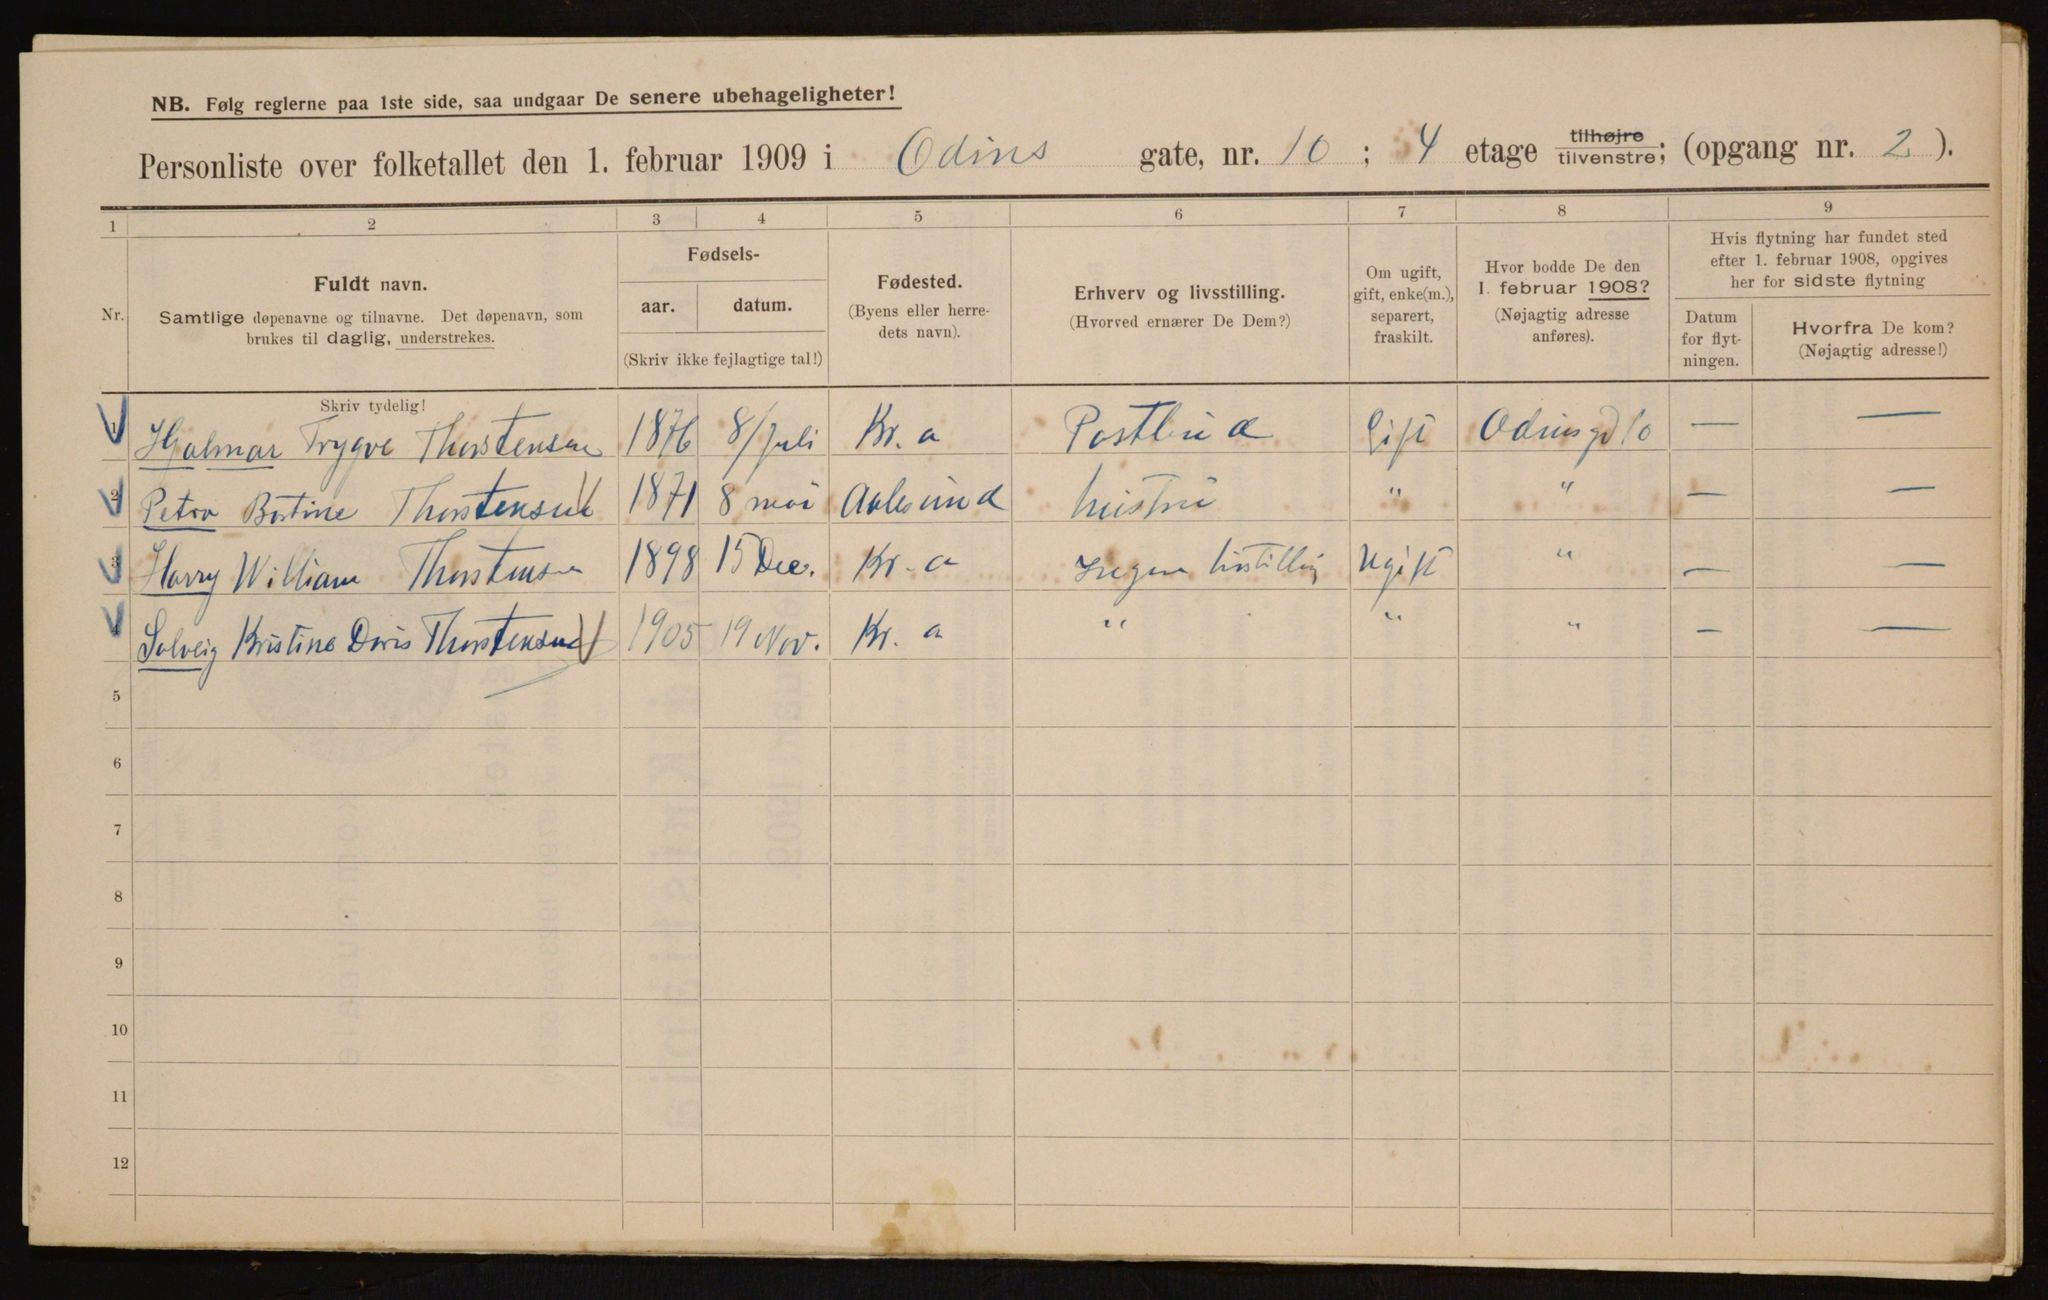 NB. Følg reglerne paa 1ste side, saa undgaar De senere ubehageligheter!
Personliste over folketallet den 1. februar 1909 i Odins gate, nr. 10 ; 4 etage tilhøjre tilvenstre; (opgang nr. 2 ).
1 2 3 4 5 6 7 8 9
Nr.
Fuldt navn.
Samtlige døpenavne og tilnavne. Det døpenavn, som
brukes til daglig, understrekes.
Skriv tydelig!
Fødsels-
aar. datum.
(Skriv ikke fejlagtige tal!)
Fødested.
(Byens eller herre-
dets navn).
Erhverv og livsstilling.
(Hvorved ernærer De Dem?)
Om ugift,
gift, enke(m.),
separert,
fraskilt.
Hvor bodde De den
1. februar 1908?
(Nøjagtig adresse
anføres).
Hvis flytning har fundet sted
efter 1. februar 1908, opgives
her for sidste flytning
Datum
for flyt-
ningen.
Hvorfra De kom?
(Nøjagtig adresse!)
1 Hjalmar Trygve Thorstensen 1876 8/Juli Kr. a Postbud Gift Odinsgd 10 — —
2 Petra Bertine Thorstensen 1871 8 mai Aalesund hustru " " — —
3 Harry William Thorstensen 1898 15 Dec. Kr. a Ingen Ugift " — —
4 Solveig Kristine Doris Thorstensen 1905 19 Nov. Kr. a " " " — —
5
6
7
8
9
10
11
12